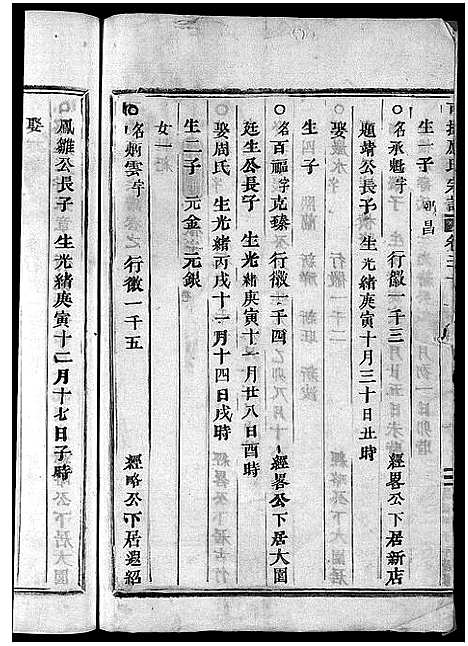 生一子 昌
○名承魁字 行徽一千三 經畧公下居新店
題靖公長子 生光緒庚寅十月三十日丑時
娶
生四子
○名百福字克臻 行徽一千四 經畧公下居大園
廷生公長子 生光緒庚寅十一月廿八日酉時
娶周氏 生光緒丙戌十一月十四日戌時
生二子 元金 元銀
女一
○名炳雲字 行徽一千五 經略公下居遐紹
鳳雛公長子 生光緒庚寅十二月十七日子時
娶